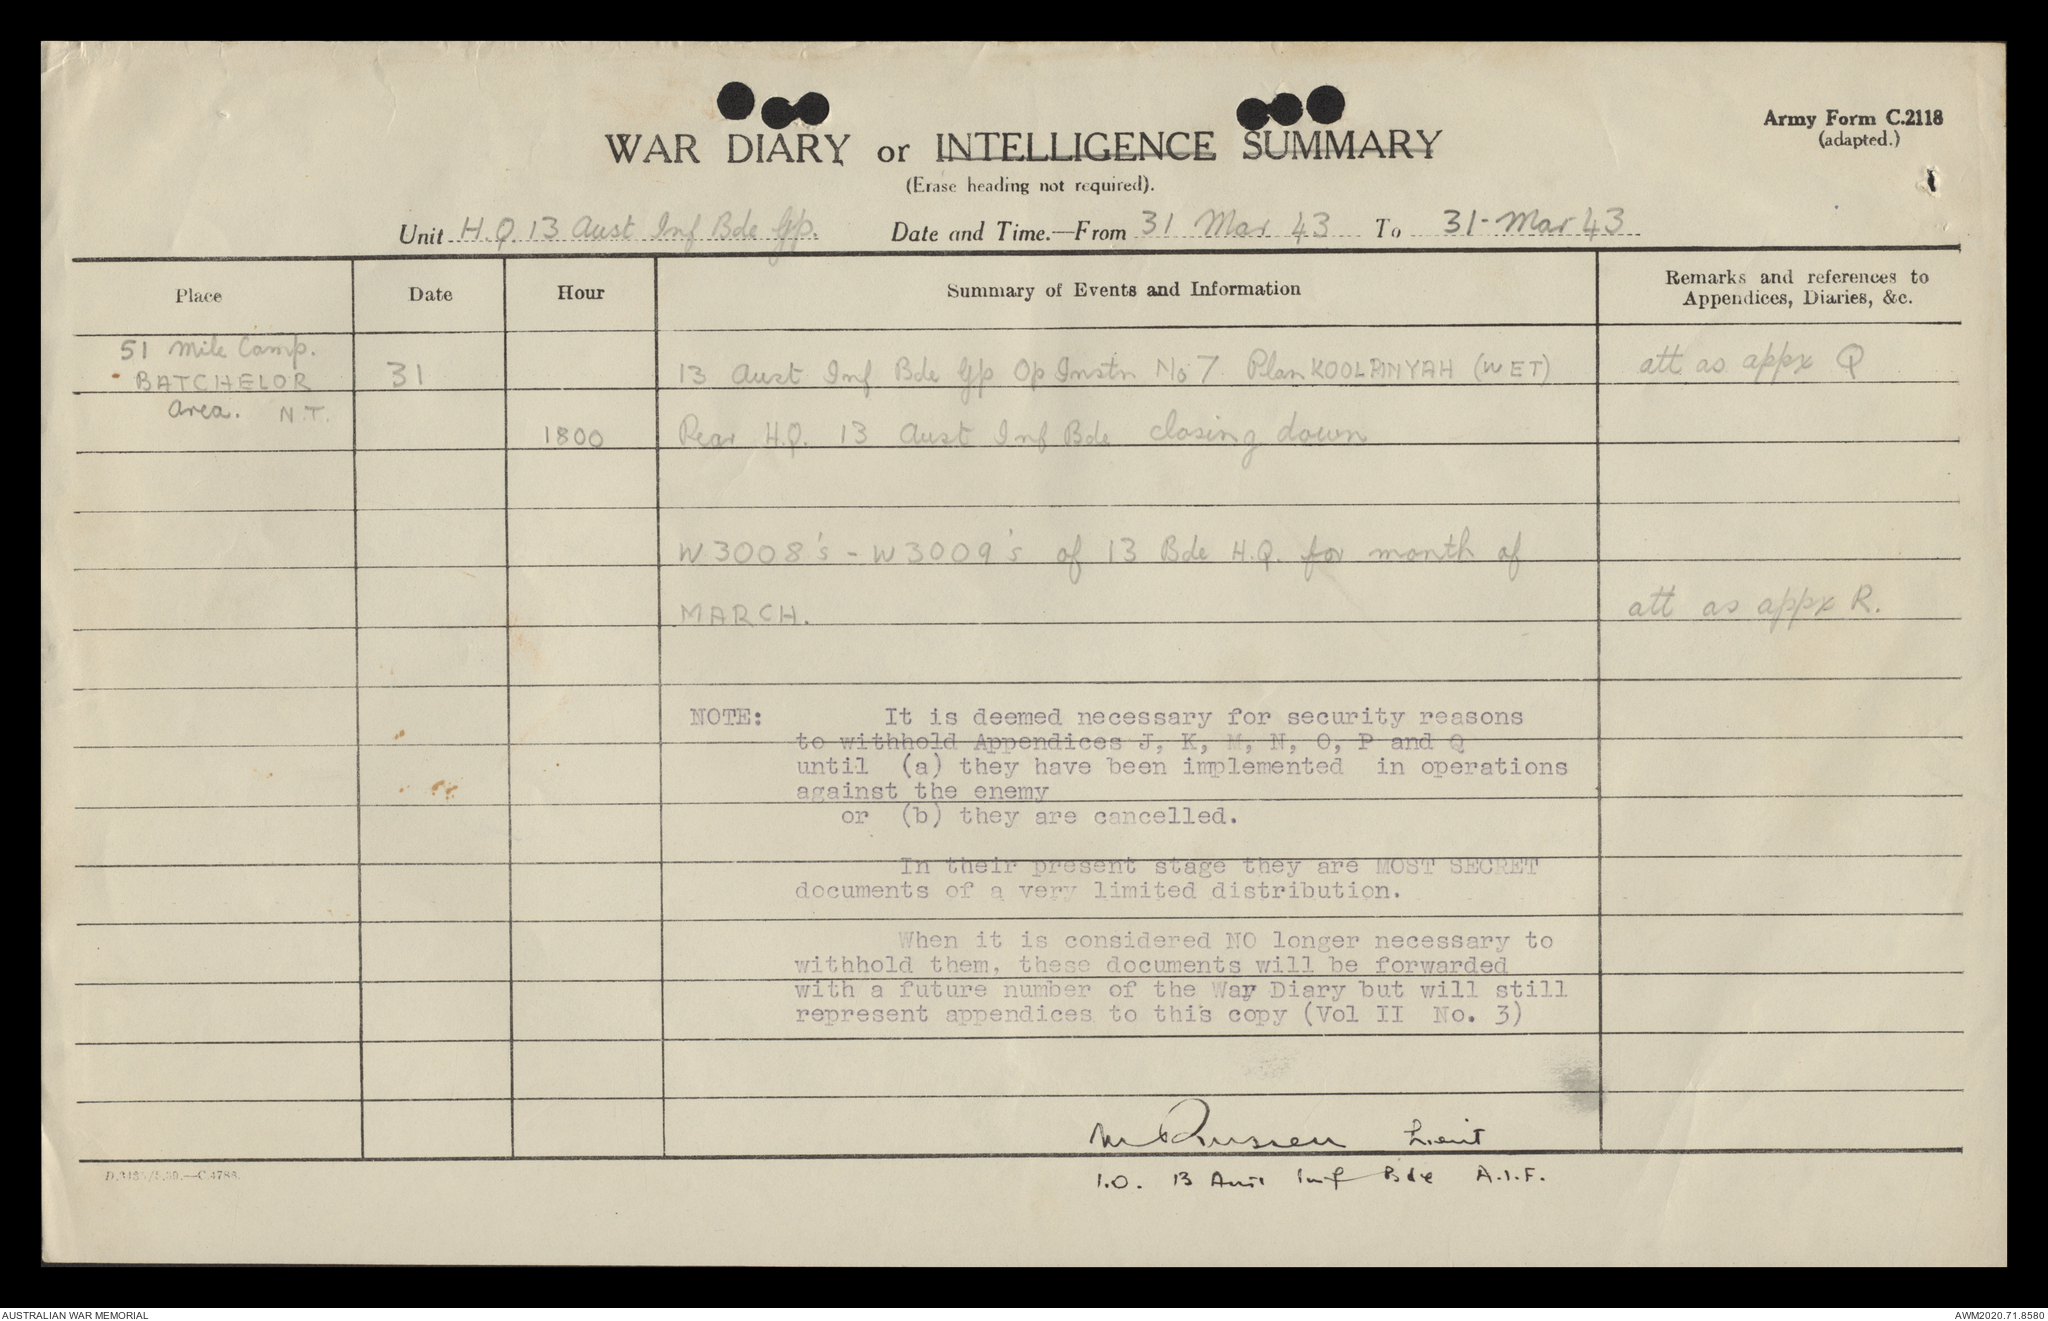 Army Form C.2118
(adapted.)
WAR DIARY or INTELLIGENCE SUMMARY
(Erase heading not required).
Unit H.Q. 13 Aust Inf Bde Gp. Date and Time.—From 31 Mar 43 To 31 Mar 43
Place Date Hour Summary of Events and Information Remarks and references to Appendices, Diaries, &c.
51 Mile Camp.
BATCHELOR 31 13 Aust Inf Bde Gp Op Instn No 7 Plan KOOLPINYAH (WET) att as appx Q
Area. N.T.
1800 Rear H.Q. 13 Aust Inf Bde closing down
W3008's - W3009's of 13 Bde H.Q. for month of
MARCH. att as appx R.
NOTE: It is deemed necessary for security reasons
to withhold Appendices J, K, M, N, O, P and Q
until (a) they have been implemented in operations
against the enemy
or (b) they are cancelled.
In their present stage they are MOST SECRET
documents of a very limited distribution.
When it is considered NO longer necessary to
withhold them, these documents will be forwarded
with a future number of the War Diary but will still
represent appendices to this copy (Vol II No. 3)
Lieut
I.O. 13 Aust Inf Bde A.I.F.
AUSTRALIAN WAR MEMORIAL
AWM2020.71.8580